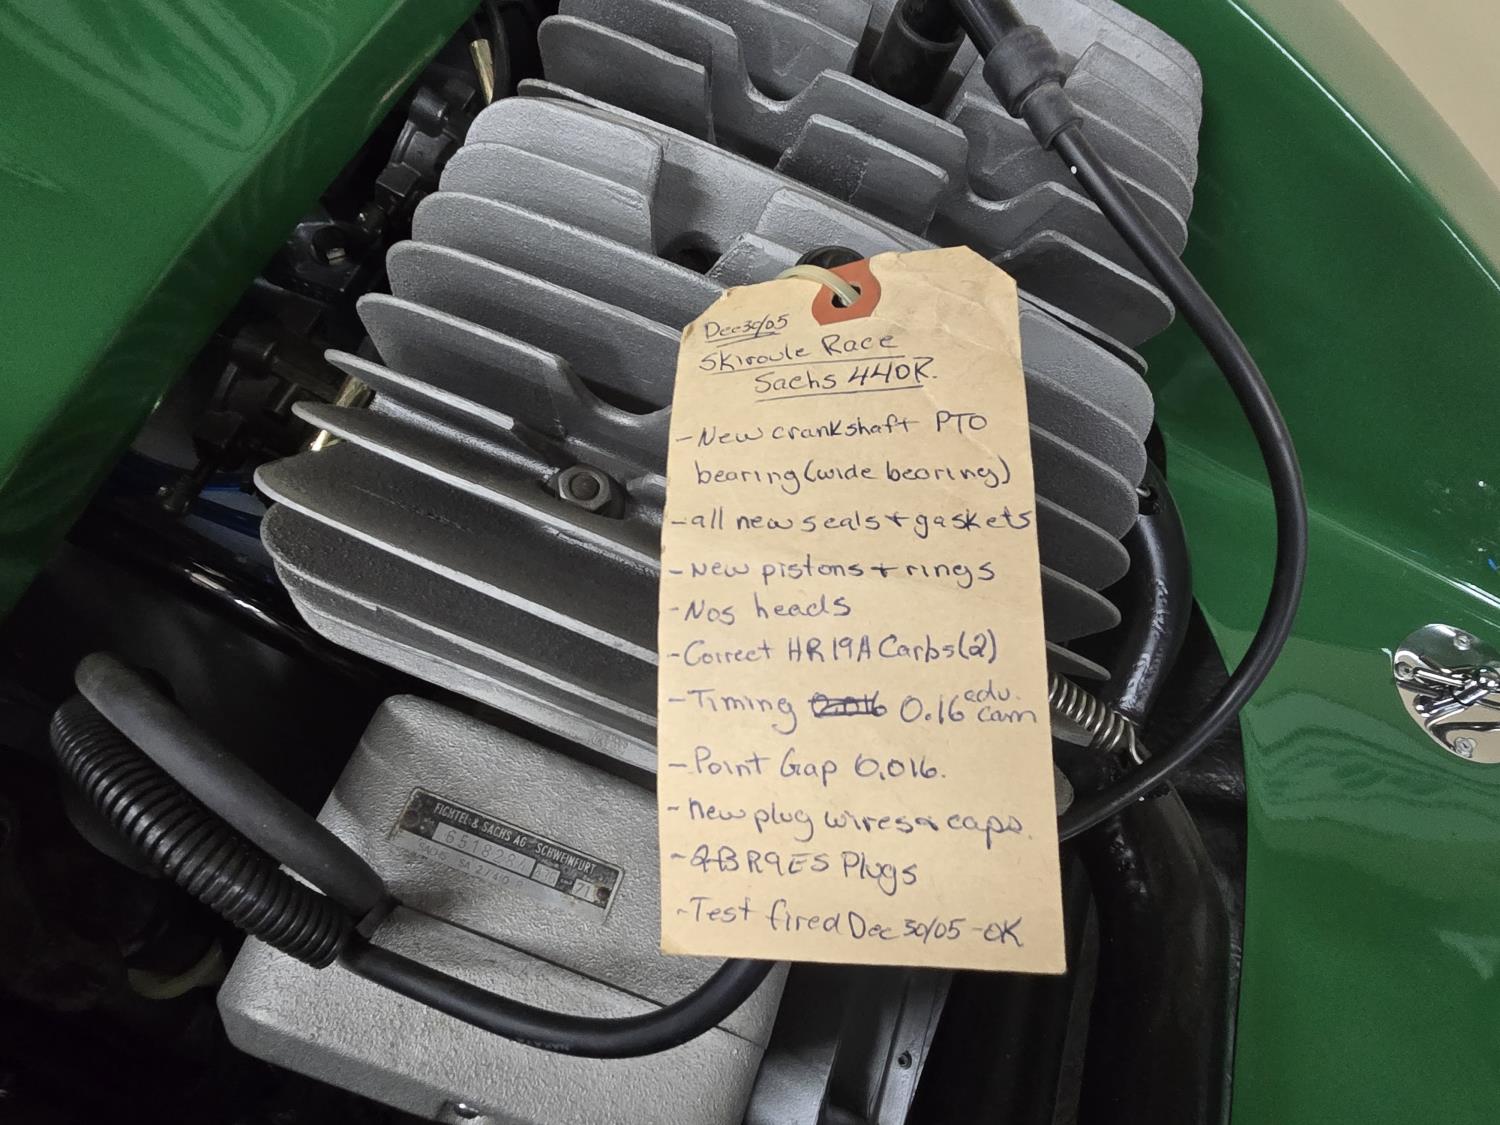 Dec 30/05
Skiroule Race
Sachs 440R.
- New crankshaft PTO
bearing (wide bearing)
- all new seals + gaskets
- New pistons + rings
- Nos heads
- Correct HR19A Carbs (2)
- Timing 0.016 0.16 adv. cam
- Point Gap 0.016.
- New plug wires + caps.
- BR9ES Plugs
- Test fired Dec 30/05 - OK
FICHTEL & SACHS AG - SCHWEINFURT
6518284
SACHS SA 2/440
71